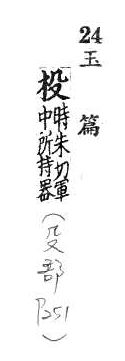 24 玉篇
「杸」時朱切軍中所持器(殳部 P251)